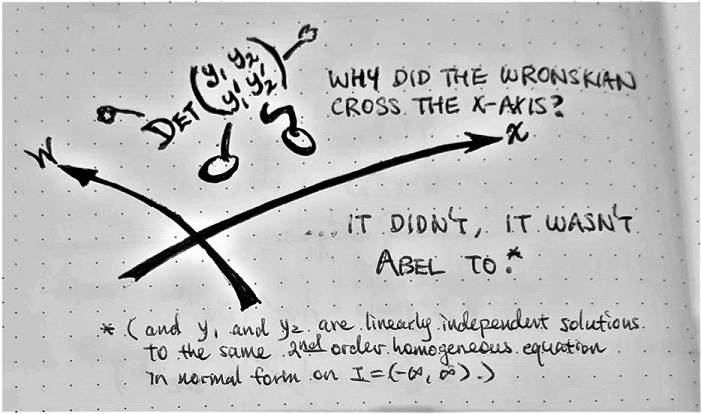 DET(y₁ y₂
y₁' y₂')
WHY DID THE WRONSKIAN
CROSS THE X-AXIS?
W
x
...IT DIDN'T, IT WASN'T
ABEL TO.*
* (and y₁ and y₂ are linearly independent solutions
to the same 2nd order homogeneous equation
in normal form on I=(-∞, ∞).)